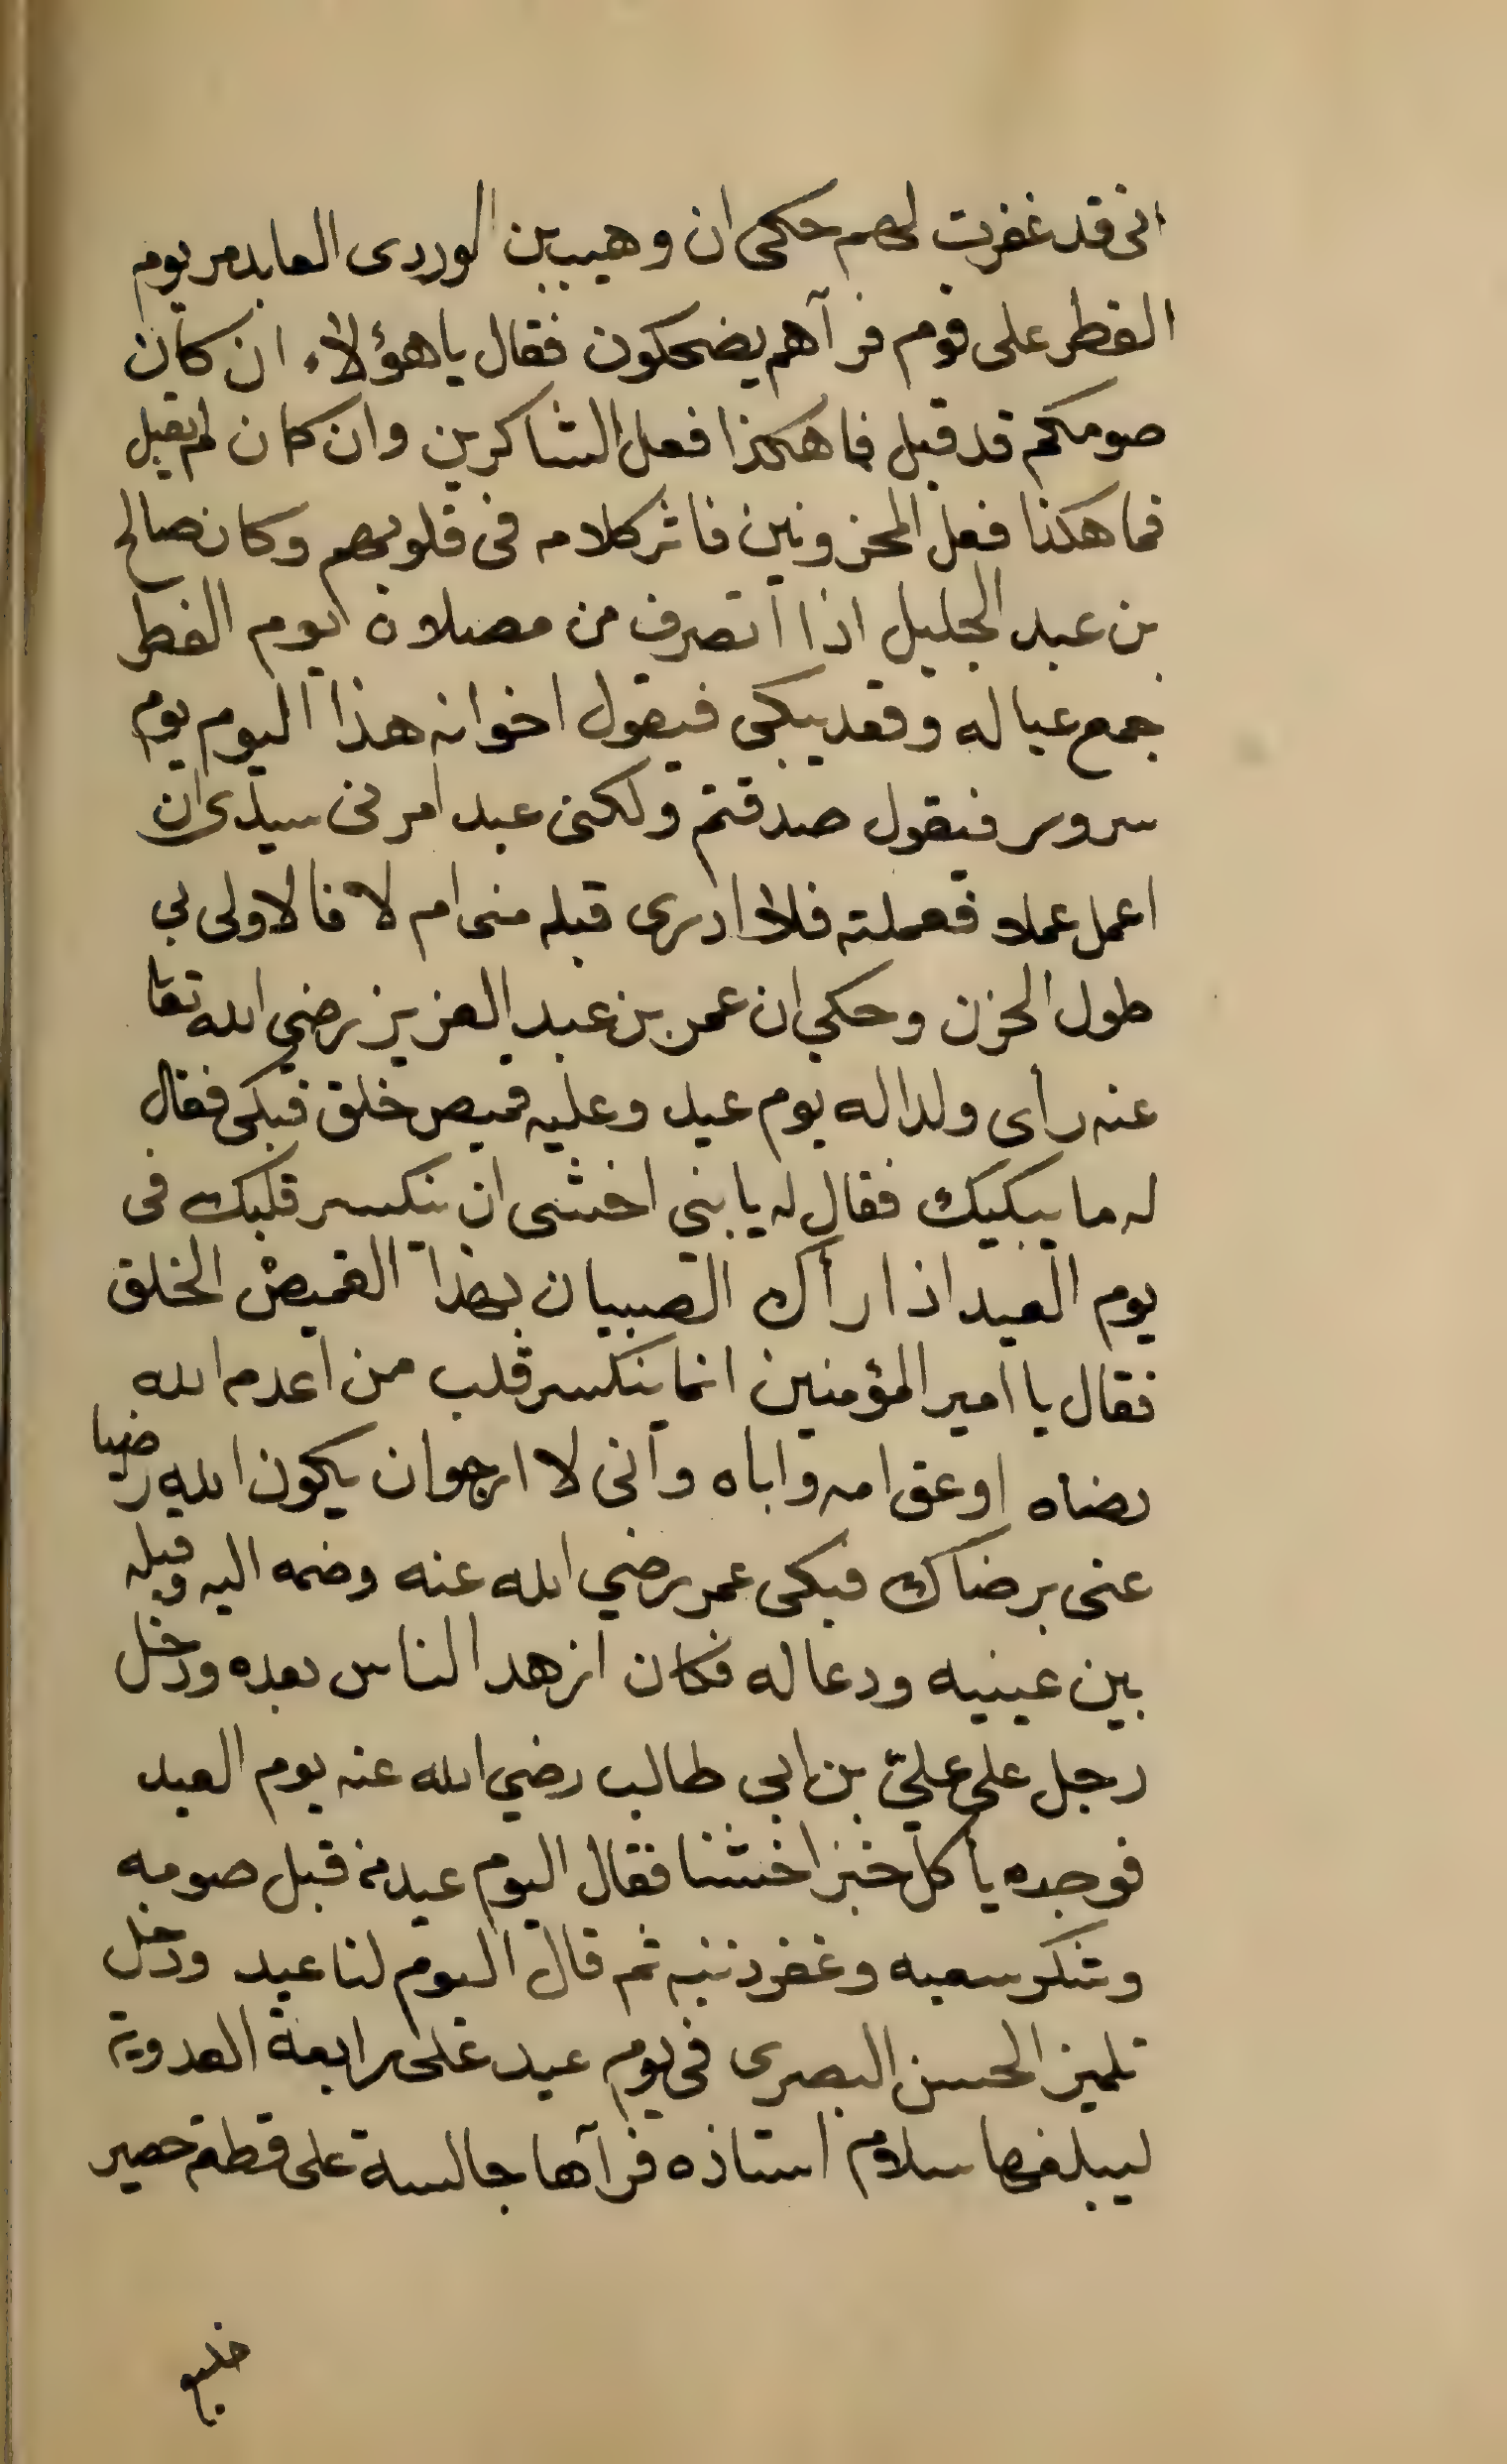 انى قد غفرت لهم حكى ان وهيب بن الوردى العابد مر يوم
الفطر على قوم فرآهم يضحكون فقال يا هؤلاء ان كان
صومكم قد قبل فما هكذا فعل الشاكرين وان كان لم يقبل
فما هكذا فعل المحزونين فاثر كلامه فى قلوبهم وكان صالح
بن عبد الجليل اذا انصرف من مصلاه يوم الفطر
جمع عياله وقعد يبكى فيقول اخوانه هذا اليوم يوم
سرور فيقول صدقتم ولكنى عبد امرنى سيدى ان
اعمل عملا فعملته فلا ادرى قبله منى ام لا فالاولى بى
طول الحزن وحكي ان عمر بن عبد العزيز رضي الله تعا
عنه رأى ولدا له يوم عيد وعليه قميص خلق فبكى فقال
له ما يبكيك فقال له يا بني اخشى ان ينكسر قلبك فى
يوم العيد اذا رأك الصبيان بهذا القميص الخلق
فقال يا امير المؤمنين انما ينكسر قلب من اعدمه الله
رضاه او عق امه واباه وانى لا ارجوان يكون الله رضيا
عنى برضاك فبكى عمر رضي الله عنه وضمه اليه وقبله
بين عينيه ودعا له فكان ازهد الناس بعده ودخل
رجل على عليّ بن ابى طالب رضي الله عنه يوم العيد
فوجده يأكل خبزا خشنا فقال اليوم عيد من قبل صومه
وشكر سعيه وغفر ذنبه ثم قال اليوم لنا عيد ودخل
تلميذ الحسن البصرى فى يوم عيد على رابعة العدوية
ليبلغها سلام استاذه فرآها جالسة على قطعة حصير